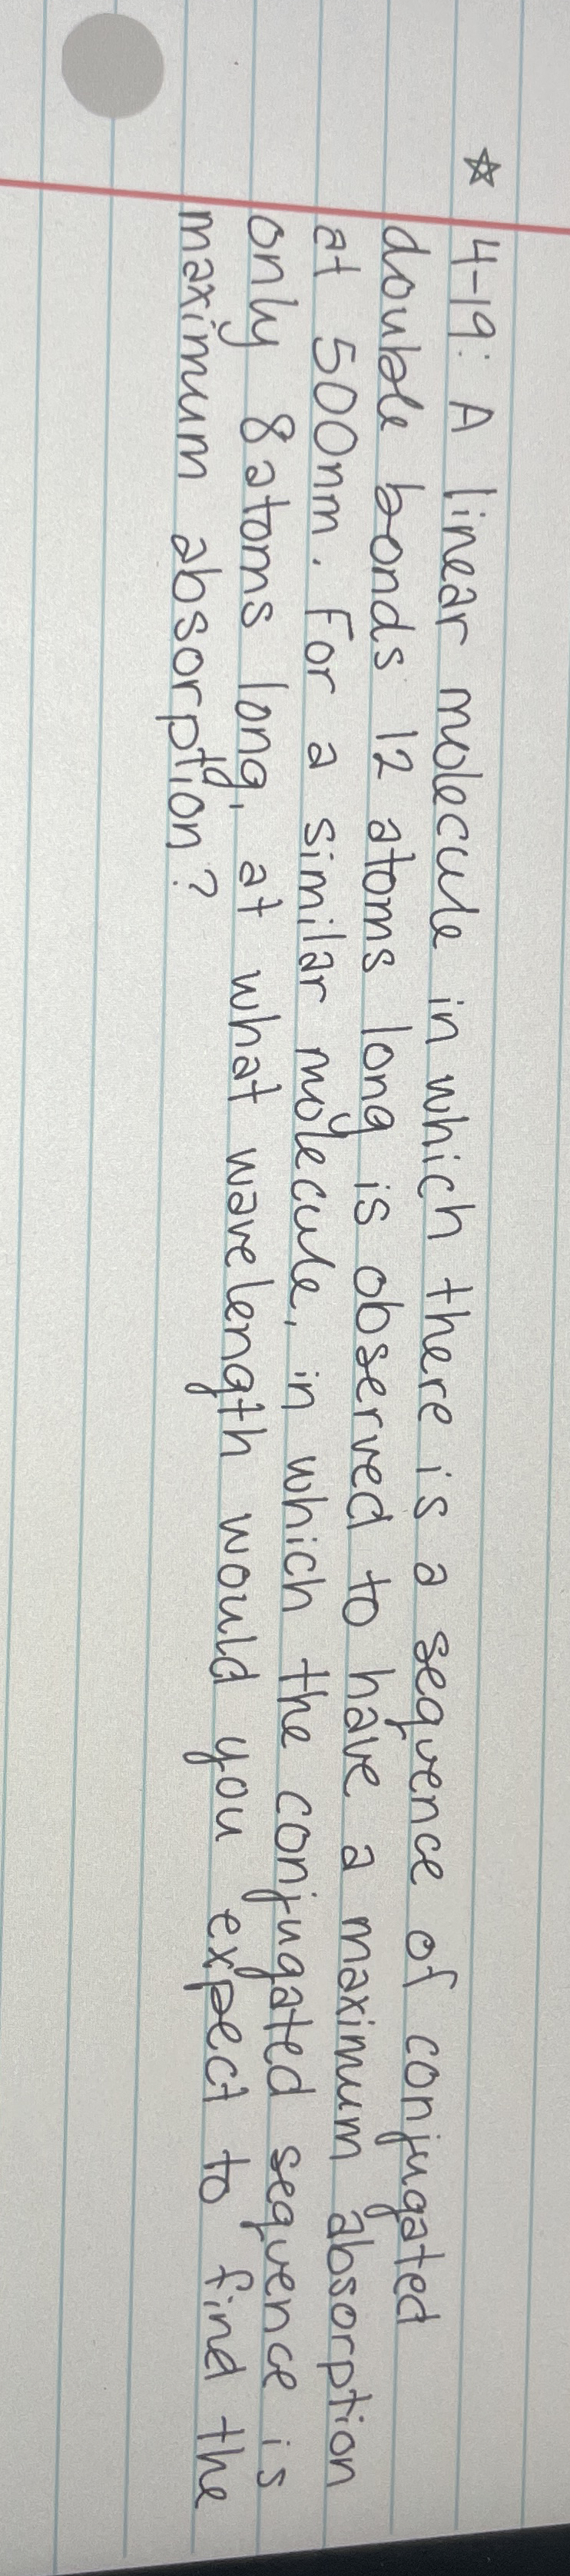 ☆ 4-19: A linear molecule in which there is a sequence of conjugated
double bonds 12 atoms long is observed to have a maximum absorption
at 500nm. For a similar molecule, in which the conjugated sequence is
only 8 atoms long, at what wavelength would you expect to find the
maximum absorption?